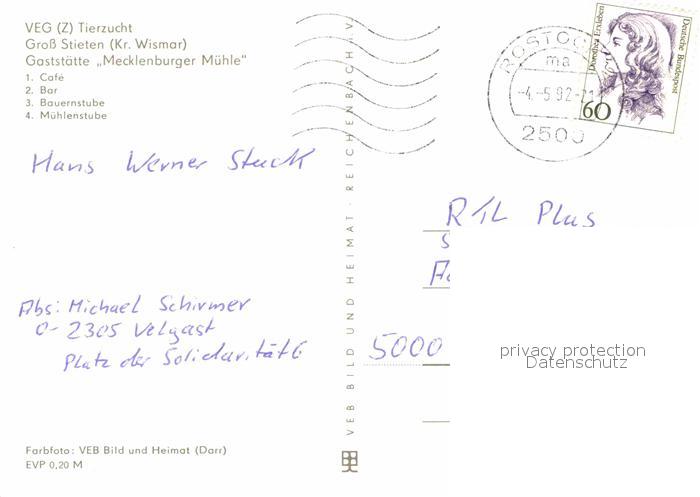 VEG (Z) Tierzucht
Groß Stieten (Kr. Wismar)
Gaststätte „Mecklenburger Mühle"
1. Café
2. Bar
3. Bauernstube
4. Mühlenstube
Hans Werner Stuck
Abs: Michael Schirmer
O-2305 Velgast
Platz der Solidarität 6
Farbfoto: VEB Bild und Heimat (Darr)
EVP 0,20 M
VEB BILD UND HEIMAT · REICHENBACH I. V.
ROSTOCK
ma
-4.-5.92-21
2500
Dorothea Erxleben
Deutsche Bundespost
60
RTL Plus
5000
privacy protection
Datenschutz